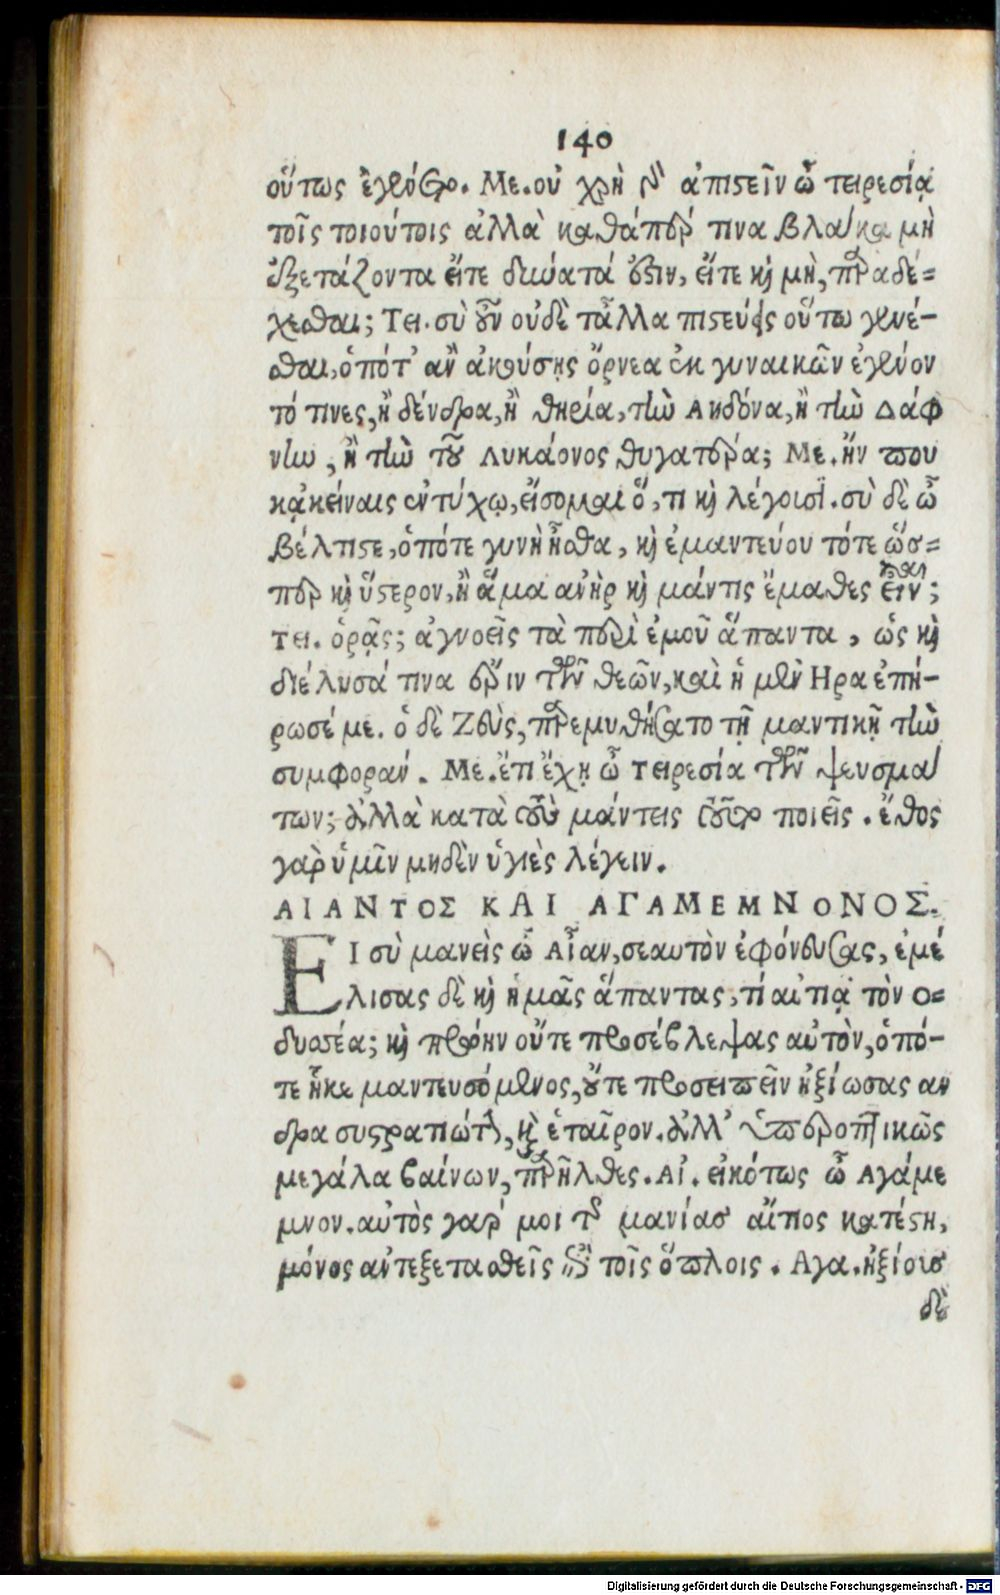 140
οὕτως ἐγένετο. Με. οὐ χρὴ οὖν ἀπιστεῖν ὦ τειρεσία
τοῖς τοιούτοις ἀλλὰ καθάπερ τινα βλᾶκα μὴ
ἐξετάζοντα εἴτε δυνατά ἐστιν, εἴτε καὶ μὴ, παραδέ-
χεσθαι; Τει. σὺ οὖν οὐδὲ τἆλλα πιστεύεις οὕτω γενέ-
σθαι, ὁπότ' ἂν ἀκούσῃς ὄρνεα ἐκ γυναικῶν ἐγένον
τό τινες, ἢ δένδρα, ἢ θηρία, τὴν Αηδόνα, ἢ τὴν Δάφ
νην, ἢ τὴν τοῦ Λυκάονος θυγατέρα; Με. ἤν που
κᾀκείναις ἐντύχω, εἴσομαι ὅ, τι καὶ λέγουσι. σὺ δὲ ὦ
βέλτιστε, ὁπότε γυνὴ ἦσθα, καὶ ἐμαντεύου τότε ὥσ-
περ καὶ ὕστερον, ἢ ἅμα ἀνὴρ καὶ μάντις ἔμαθες εἶναι;
τει. ὁρᾷς; ἀγνοεῖς τὰ περὶ ἐμοῦ ἅπαντα, ὡς καὶ
διέλυσά τινα ἔριν τῶν θεῶν, καὶ ἡ μὲν Ηρα ἐπή-
ρωσέ με. ὁ δὲ Ζεὺς, παρεμυθήσατο τῇ μαντικῇ τὴν
συμφοράν. Με. ἔτι ἔχῃ ὦ τειρεσία τῶν ψευσμά
των; ἀλλὰ κατὰ τοὺς μάντεις τοῦτο ποιεῖς. ἔθος
γὰρ ὑμῖν μηδὲν ὑγιὲς λέγειν.
ΑΙΑΝΤΟΣ ΚΑΙ ΑΓΑΜΕΜΝΟΝΟΣ.
ΕΙ σὺ μανεὶς ὦ Αἶαν, σεαυτὸν ἐφόνευσας, ἐμέ
λισας δὲ καὶ ἡμᾶς ἅπαντας, τί αἰτιᾷ τὸν ο-
δυσσέα; καὶ πρώην οὔτε προσέβλεψας αὐτὸν, ὁπό-
τε ἧκε μαντευσόμενος, οὔτε προσειπεῖν ἠξίωσας ἄν
δρα συστρατιώτην, καὶ ἑταῖρον. ἀλλ' ὑπεροπτικῶς
μεγάλα βαίνων, παρῆλθες. Αἰ. εἰκότως ὦ Αγάμε
μνον. αὐτὸς γάρ μοι τῆς μανίας αἴτιος κατέστη,
μόνος ἀντεξετασθεὶς ἐπὶ τοῖς ὅπλοις. Αγα. ἠξίους
δὲ
Digitalisierung gefördert durch die Deutsche Forschungsgemeinschaft - DFG